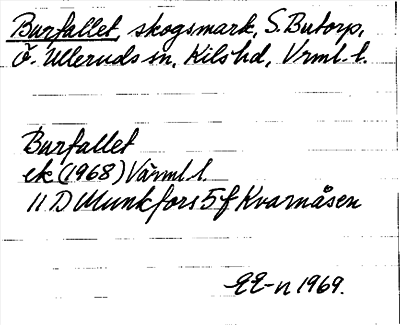 Burfallet, skogsmark, S. Butorp,
Ö. Ulleruds sn, Kils hd, Vrml. l.
Burfallet
ek (1968) Värml. l.
11 D Munkfors 5 f Kvarnåsen
EE-n 1969.